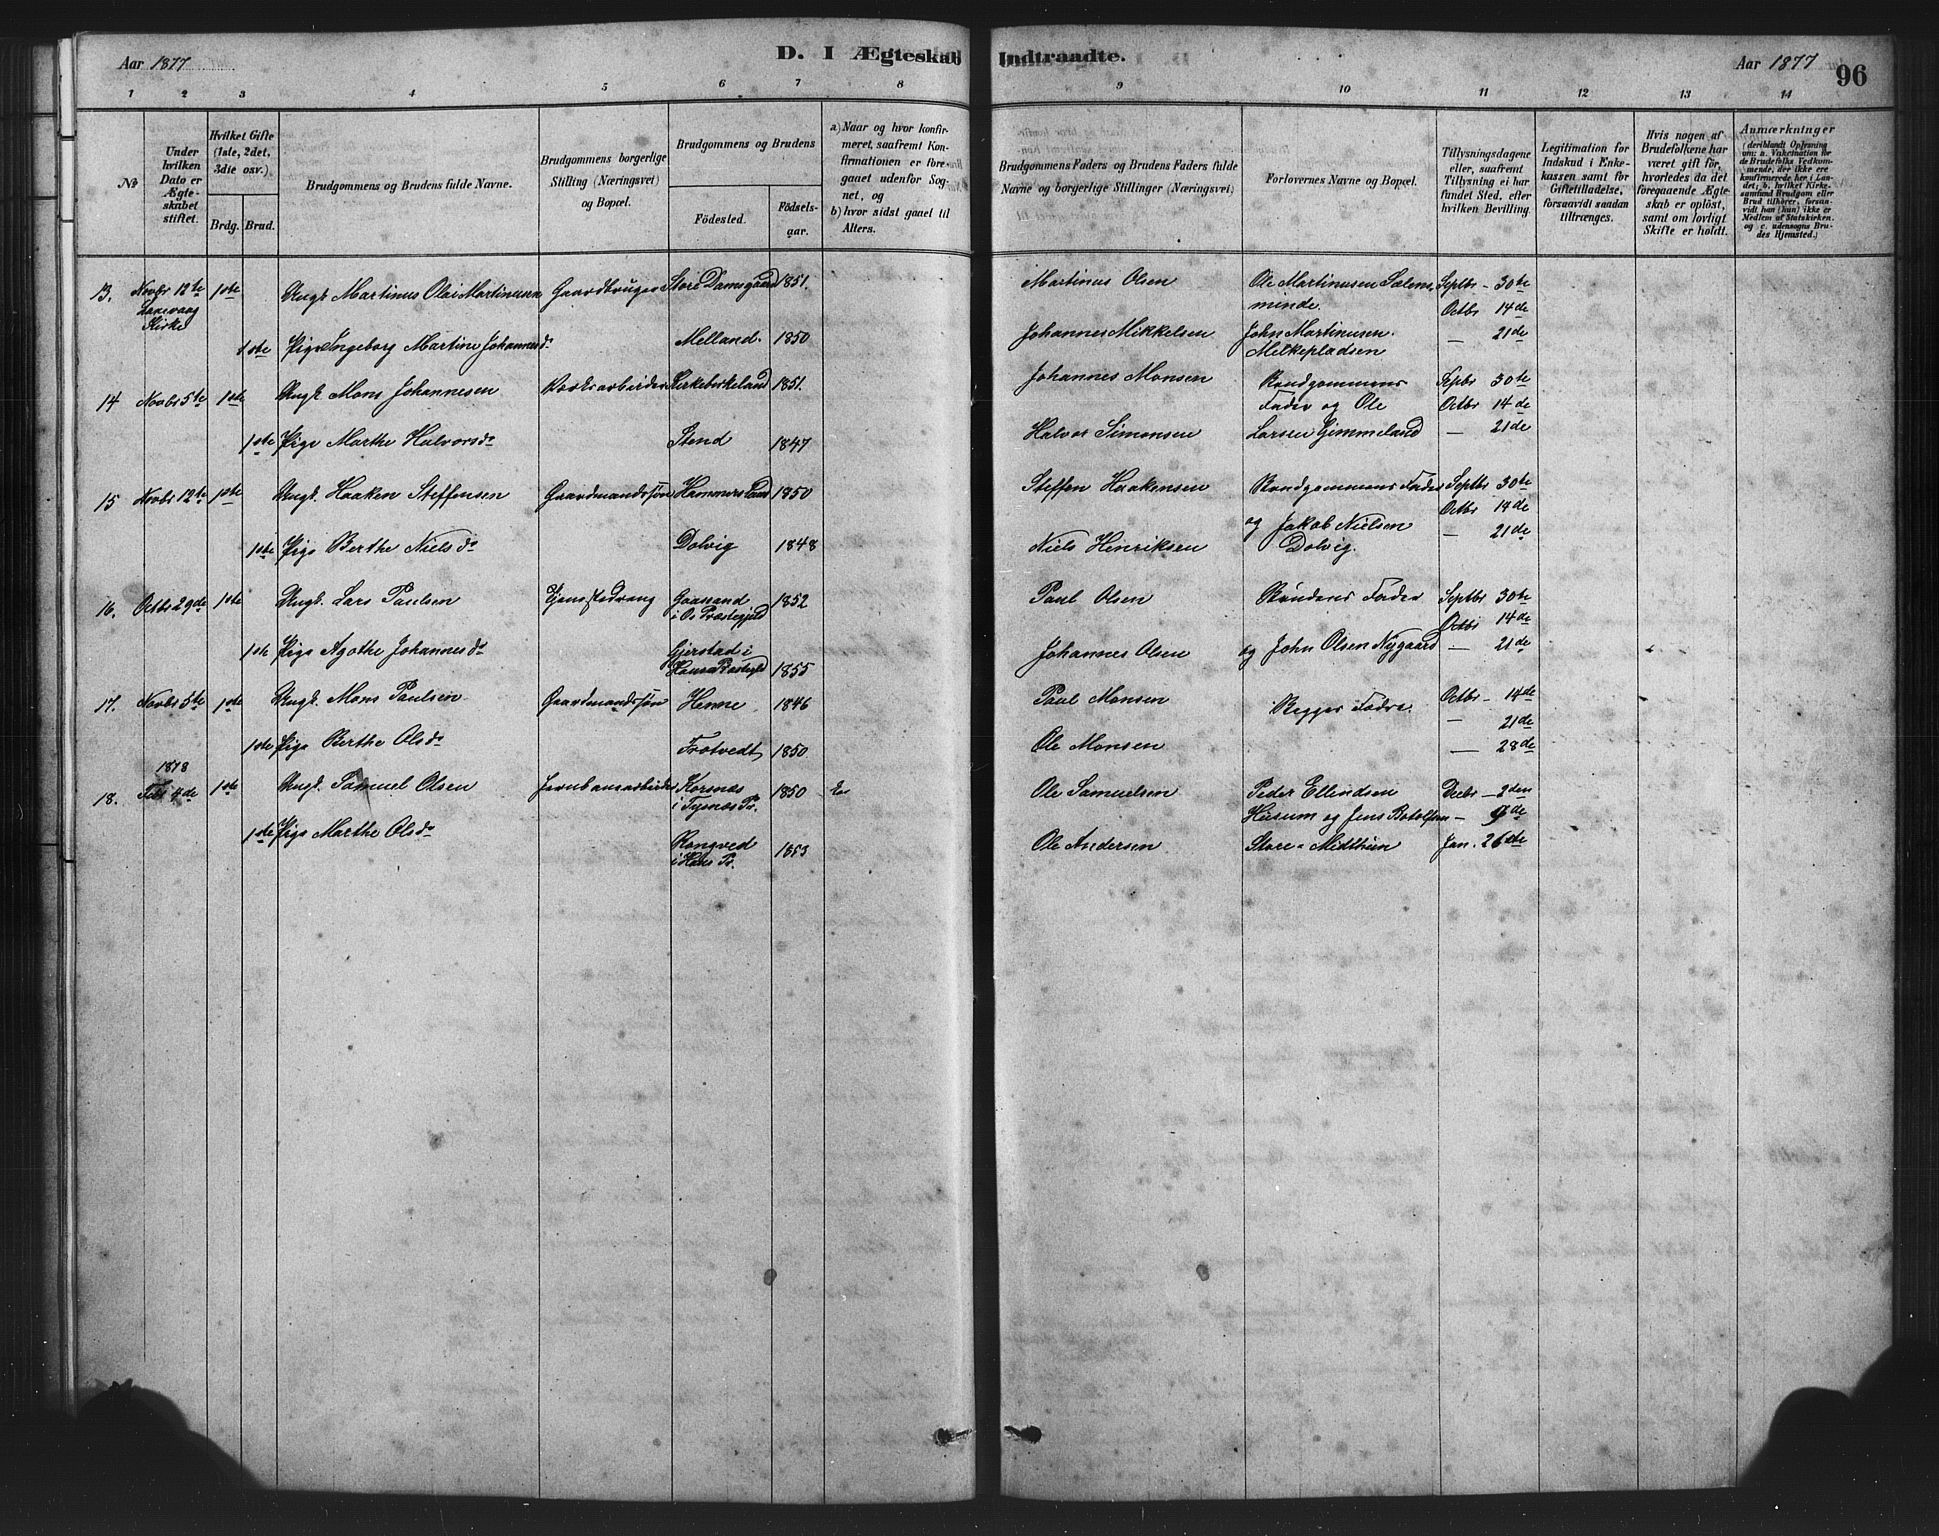 Aar 1877
D. I Ægteskab Indtraadte.
Aar 1877
96
1 2 3 4 5 6 7 8 9 10 11 12 13 14
No
Under hvilken Dato er Ægteskabet stiftet.
Hvilket Gifte (1ste, 2det, 3die osv.)
Brdg. Brud.
Brudgommens og Brudens fulde Navne.
Brudgommens borgerlige Stilling (Næringsvei) og Bopæl.
Brudgommens og Brudens
Födested.
Födselsaar.
a) Naar og hvor konfirmeret, saafremt Konfirmationen er foregaaet udenfor Sognet, og
b) hvor sidst gaaet til Alters.
Brudgommens Faders og Brudens Faders fulde Navne og borgerlige Stillinger (Næringsvei)
Forlovernes Navne og Bopæl.
Tillysningsdagene eller, saafremt Tillysning ei har fundet Sted, efter hvilken Bevilling.
Legitimation for Indskud i Enkekassen samt for Giftetilladelse, forsaavidt saadan tiltrænges.
Hvis nogen af Brudefolkene har været gift för, hvorledes da det foregaaende Ægteskab er oplöst, samt om lovligt Skifte er holdt.
Anmærkninger (deriblandt Oplysning om: a. Vakcination for de Brudefolks Vedkommende, der ikke ere konfirmerede her i Landet; b. hvilket Kirkesamfund Brudgom eller Brud tilhörer, forsaavidt han (hun) ikke er Medlem af Statskirken, og c. udensogns Brudes Hjemsted.)
13. Novbr 12te Kirke 1ste Ungk. Martinus Olai Martinusen Gaardbruger Store Damsgaard 1851. Martinus Olsen Ole Martinusen Salemsminde. Septbr - 30te
Octbr 14de
1ste Pige Ingeborg Martine Johannesdr Melland. 1850 Johannes Mikkelsen John Martinusen Melkepladsen — 21de
14 Novbr 5te 1ste Ungk. Mons Johannesen Værksarbeider Kirkebirkeland 1851. Johannes Monsen Brudgommens Fader og Ole Septbr 30te
Octbr 14de
1ste Pige Marthe Halvorsdr Stend 1847 Halvor Simonsen Larsen Gimmeland — 21de
15 Novbr 12te 1ste Ungk. Haaken Steffensen Gaardmandssøn Hammersland 1850 Steffen Haakensen Brudgommens Fader Septbr 30te
Octbr 14de
1ste Pige Berthe Nielsdr Dolvig 1848 Niels Henriksen og Jakob Nielsen Dolvig. — 21de
16. Octbr 29de 1ste Ungk. Lars Paulsen Gaasand i Os Præstegjeld 1852 Paul Olsen Brudens Fader Septbr 30te
Octbr 14de
1ste Pige Agothe Johannesdr Gjerstad i Præstegjld 1855 Johannes Olsen og John Olsen Nygaard — 21de
17. Novbr 5te 1ste Ungk. Mons Paulsen Gaardmandssøn Henne 1846 Paul Monsen Begges Fædre. Octbr - 14de
— 21de
1ste Pige Berthe Olsdr Trotvedt 1850 Ole Monsen — 28de
1878
18. Febr 4de 1ste Ungk. Samuel Olsen Jernbanearbeider Korsnæs i Tysnæs Pr. 1850 Ole Samuelsen Peder Ellindsen Decbr - 2den
Husum og Jens Botolfsen — 9de
1ste Pige Marthe Olsdr Rongved i Haus Pr. 1853 Ole Andersen Store-Midthun Jan. 26de